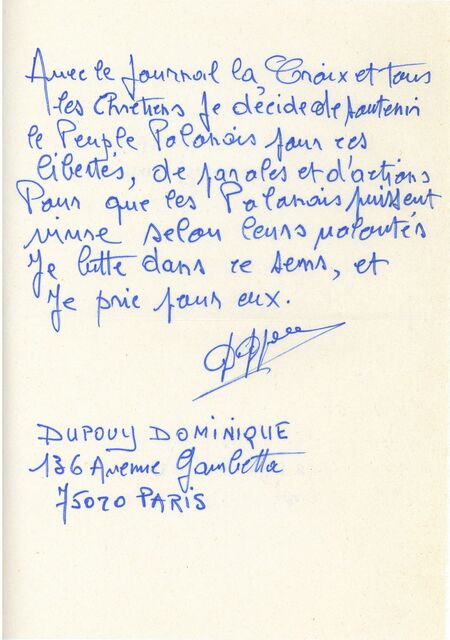 Avec le Journal la Croix et tous
les Chrétiens Je décide de soutenir
le Peuple Polonais pour ces
libertés, de paroles et d'actions
Pour que les Polonais puissent
vivre selon leurs volontés
Je lutte dans ce sens, et
Je prie pour eux.
DUPOUY DOMINIQUE
136 Avenue Gambetta
75020 PARIS